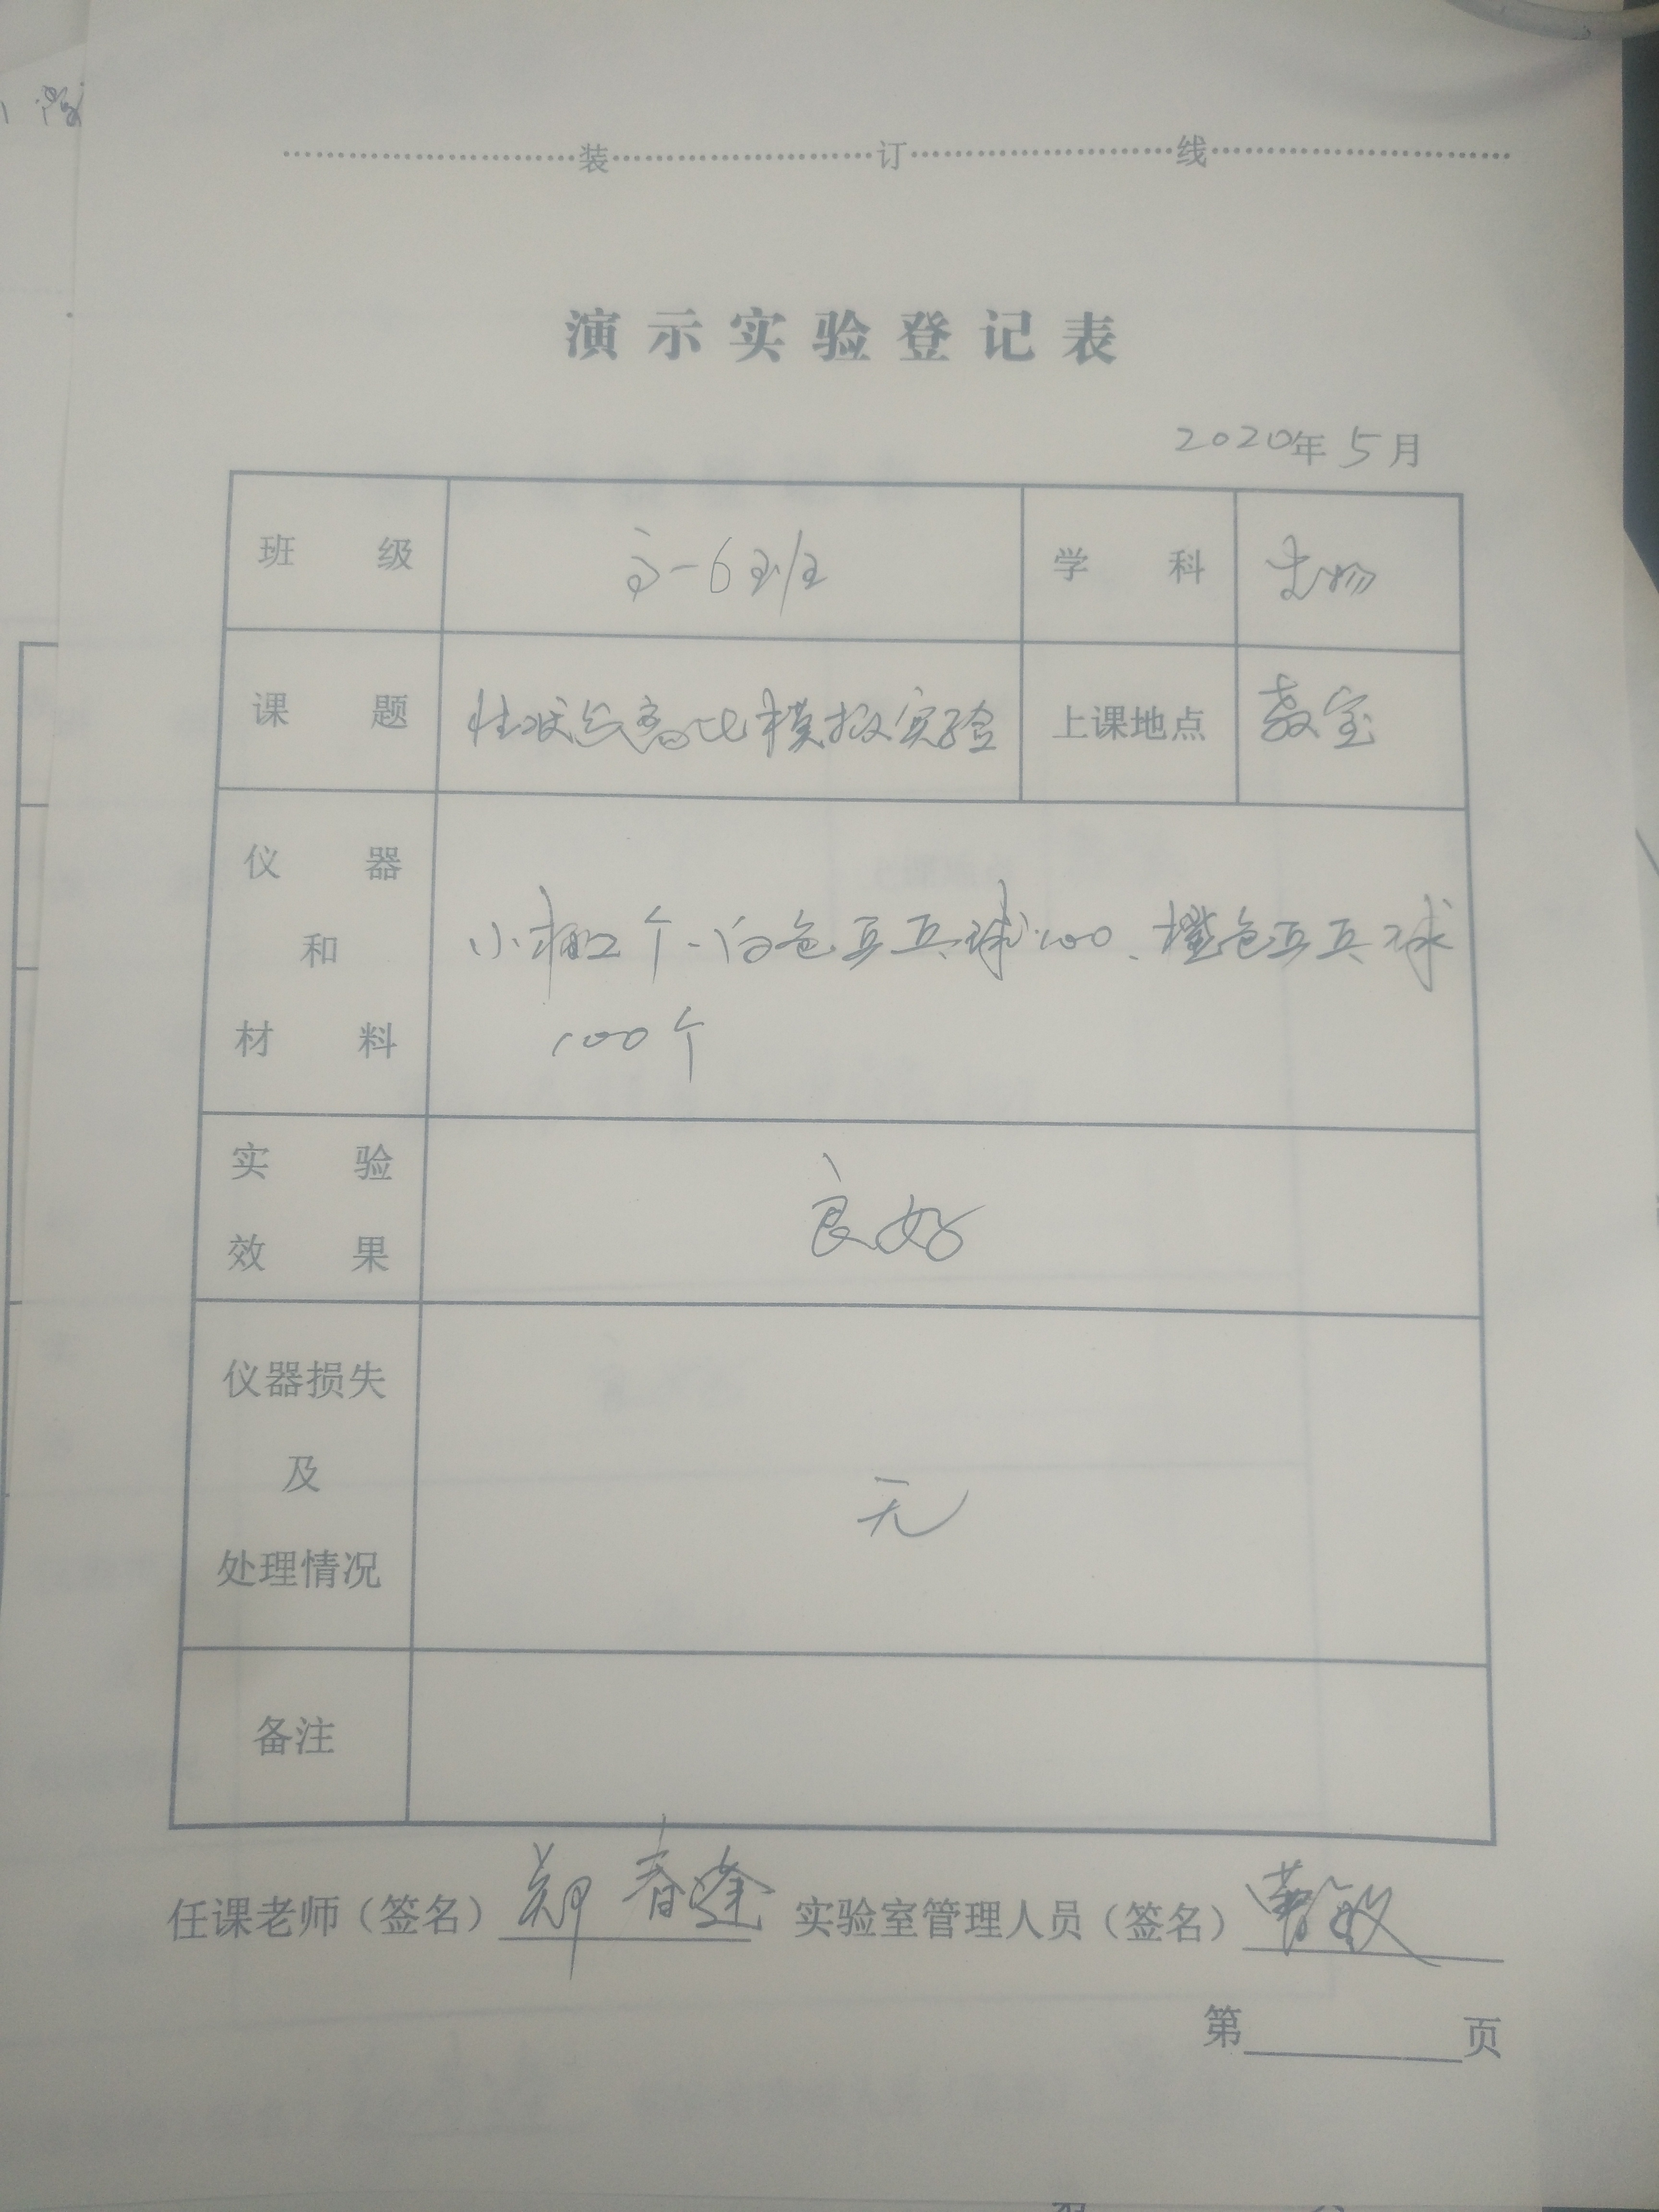 装 订 线
演示实验登记表
2020年5月
班级 高一6班 学科 生物
课题 性状分离比模拟实验 上课地点 教室
仪器和材料 小桶2个、白色乒乓球100、橙色乒乓球
100个
实验效果 良好
仪器损失及处理情况 无
备注
任课老师（签名） 郑春逢 实验室管理人员（签名）
第 页